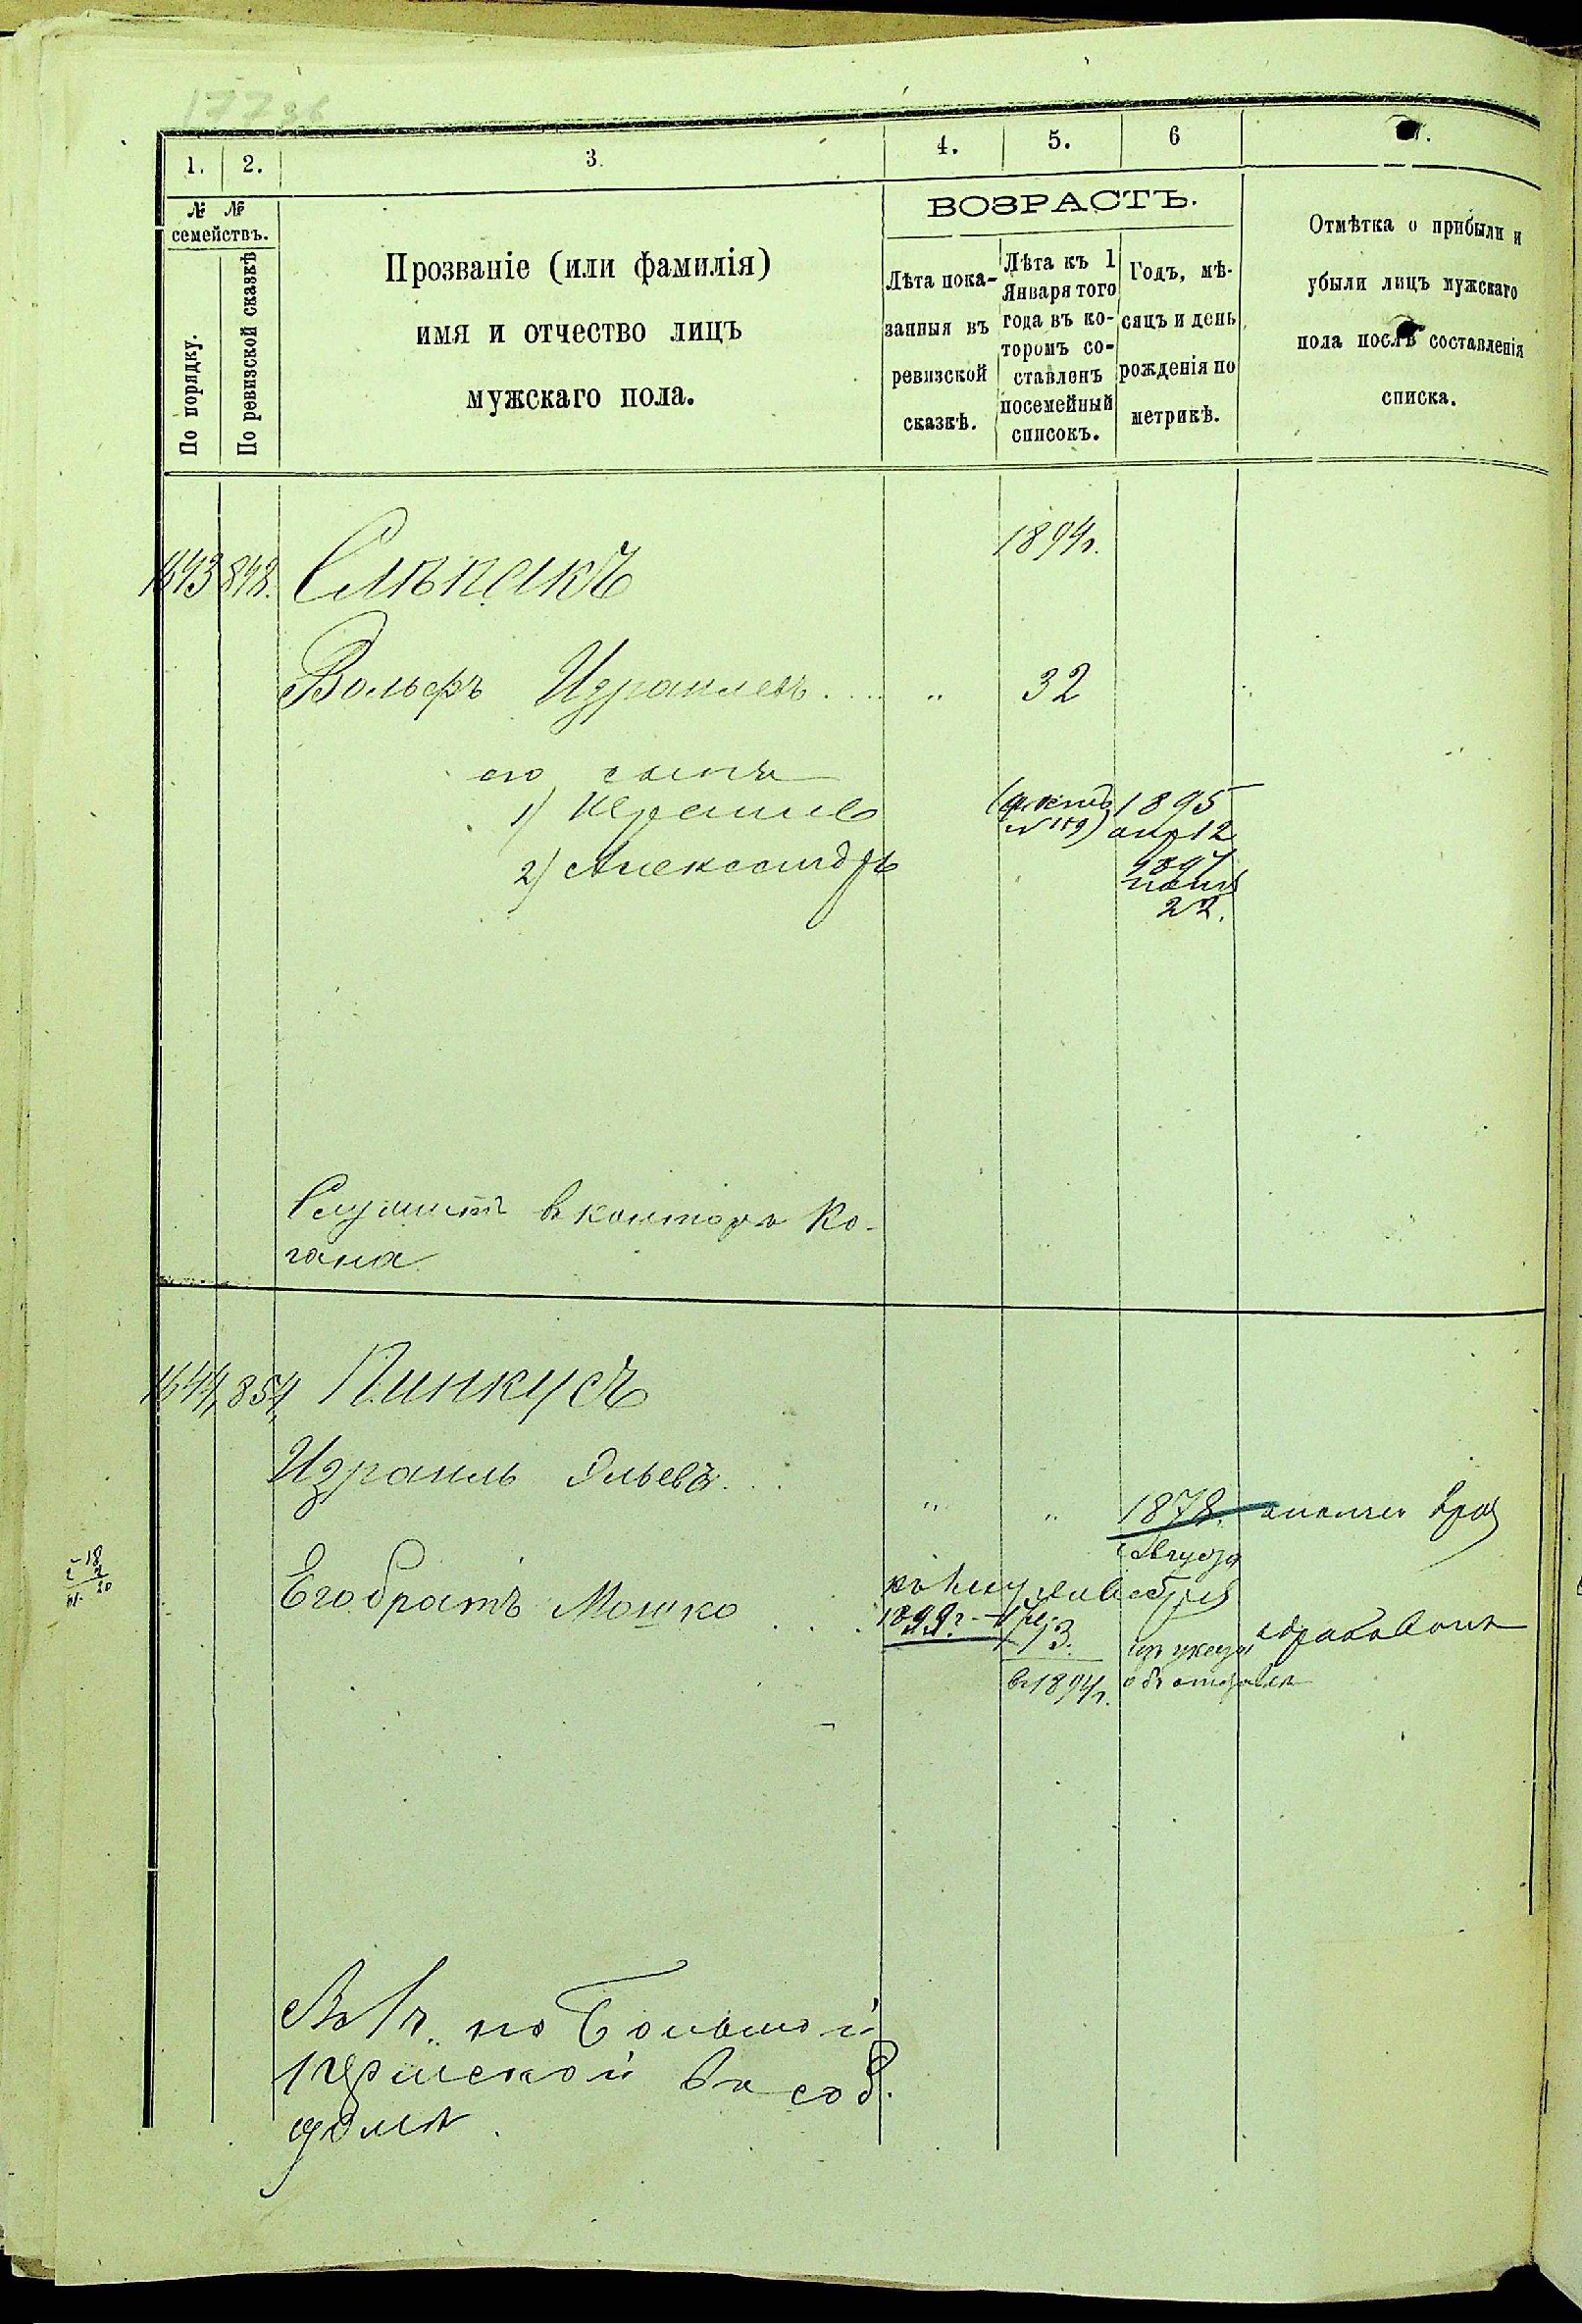 1. 2. 3. 4. 5. 6
№ № семействъ.
По порядку.
По ревизской сказкѣ
Прозваніе (или фамилія)
имя и отчество лицъ
мужскаго пола.
ВОЗРАСТЪ.
Лѣта пока-
занныя въ
ревизской
сказкѣ.
Лѣта къ 1
Января того
года въ ко-
торомъ со-
ставленъ
посемейный
списокъ.
Годъ, мѣ-
сяцъ и день
рожденія по
метрикѣ.
Отмѣтка о прибыли и
убыли лицъ мужскаго
пола послѣ составленія
списка.
1894г.
1643 848. Слѣпакъ
Вольфъ Израилевъ .... " 32
его сыновья
1) Израиль 1895
№ 119) апр 12
2) Александръ 1897
22.
Служитъ въ конторѣ Ко-
гана
1644, 854, Пинкусъ
Израиль Эльевъ... " " 1878.
Августа
Его братъ Мошко
1899г. 13.
въ 1894г.
18
2
20
В 1 ч. по Большой
въ соб.
домѣ.